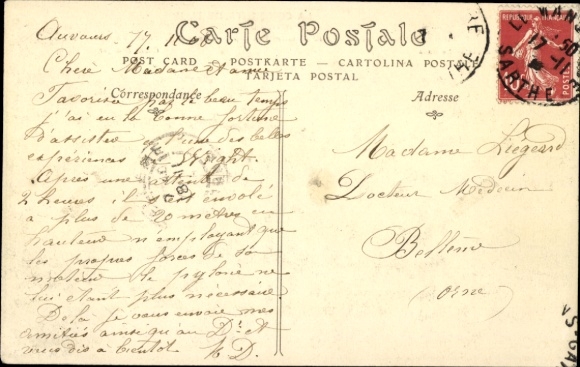 Auvours 17. 11. 08
Carte Postale
POST CARD - POSTKARTE - CARTOLINA POSTALE
TARJETA POSTAL
Correspondance
Adresse
Chère Madame et amie
Favorisé par le beau temps
j'ai eu la bonne fortune
d'assister à une des belles
expériences Wright.
Après une attente de
2 heures il s'est envolé
à plus de 20 mètres en
hauteur n'employant que
les propres forces de son
moteur le pylône ne
lui étant plus nécessaire
De là je vous envoie mes
amitiés ainsi qu'au Dr. et
vous dis à bientôt
M D.
Madame Liégard
Docteur Médecin
Bellême
Orne
REPUBLIQUE FRANCAISE
POSTES
10
LE MANS
17 - 11
SARTHE